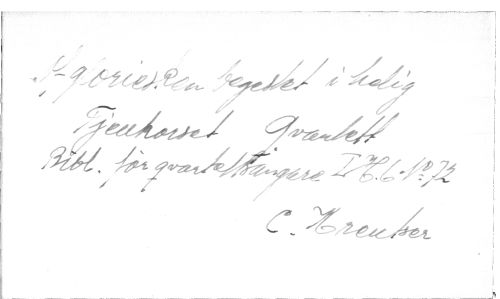 begestet i helig
Tjenhorset Qvartett
Bibl. för qvartettsångare I H.6. No 72
C. Kreutzer